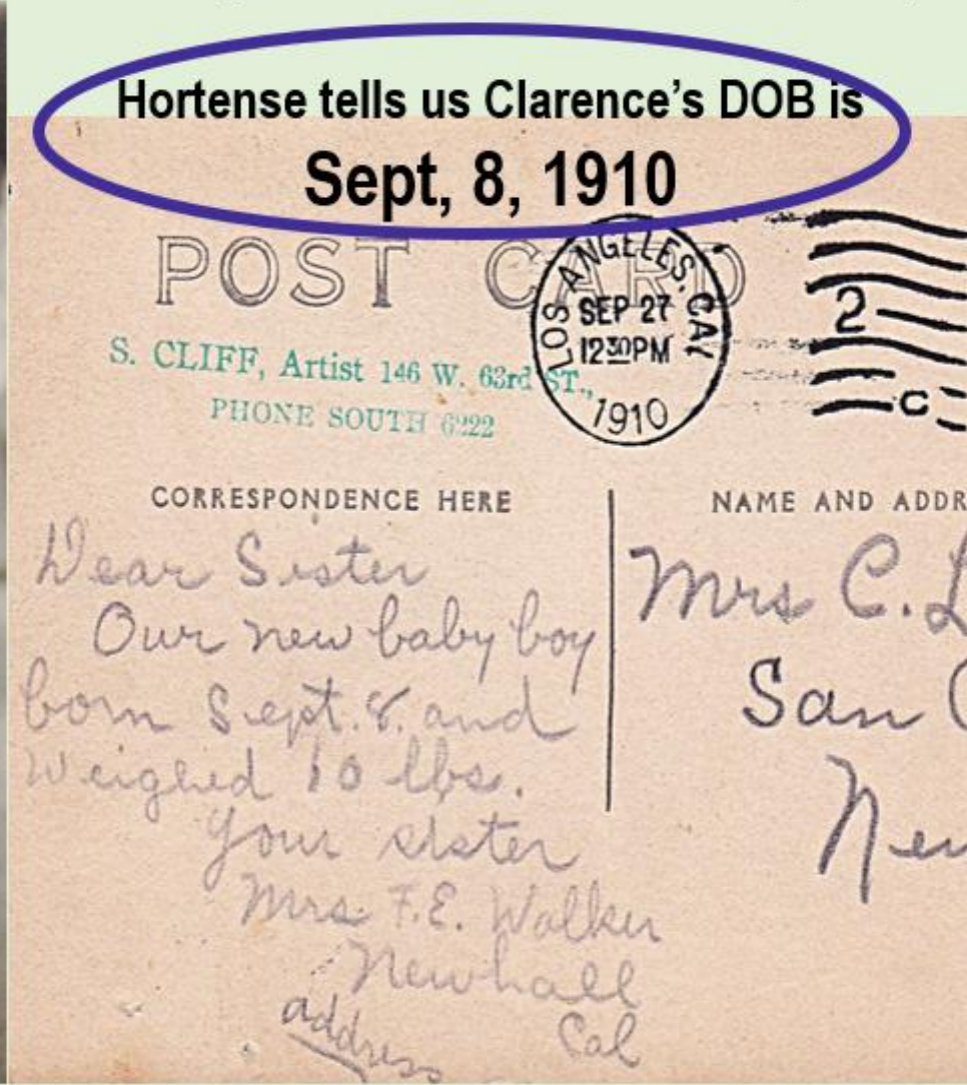 Hortense tells us Clarence's DOB is
Sept, 8, 1910
POST CARD
LOS ANGELES, CAL
SEP 27
12 30 PM
1910
2
C
S. CLIFF, Artist 146 W. 63rd ST.,
PHONE SOUTH 6222
CORRESPONDENCE HERE
NAME AND ADDR
Dear Sister
Our new baby boy
born Sept. 8. and
Weighed 10 lbs.
Your sister
Mrs F.E. Walker
Newhall
Cal
address
Mrs C. L
San
New